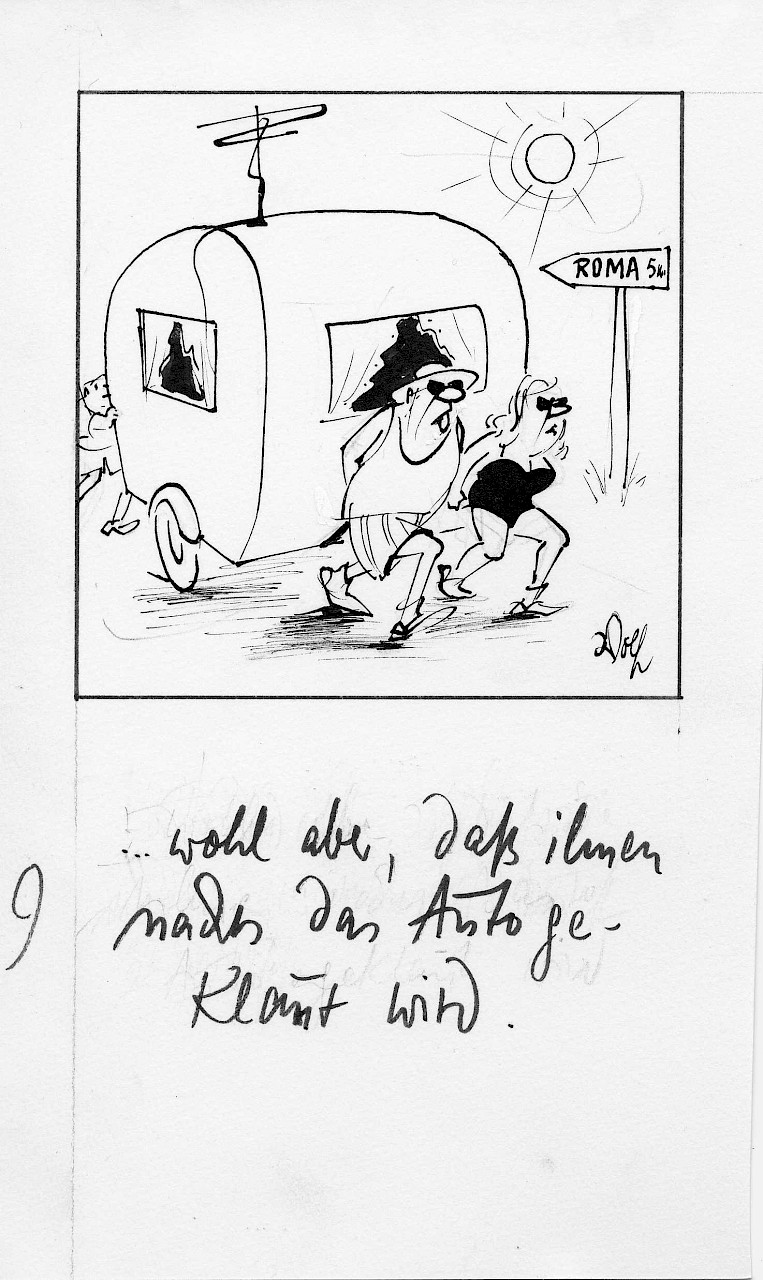 ROMA 5 km
Wolf
... wohl aber, daß ihnen
9
nachts das Auto ge-
klaut wird.